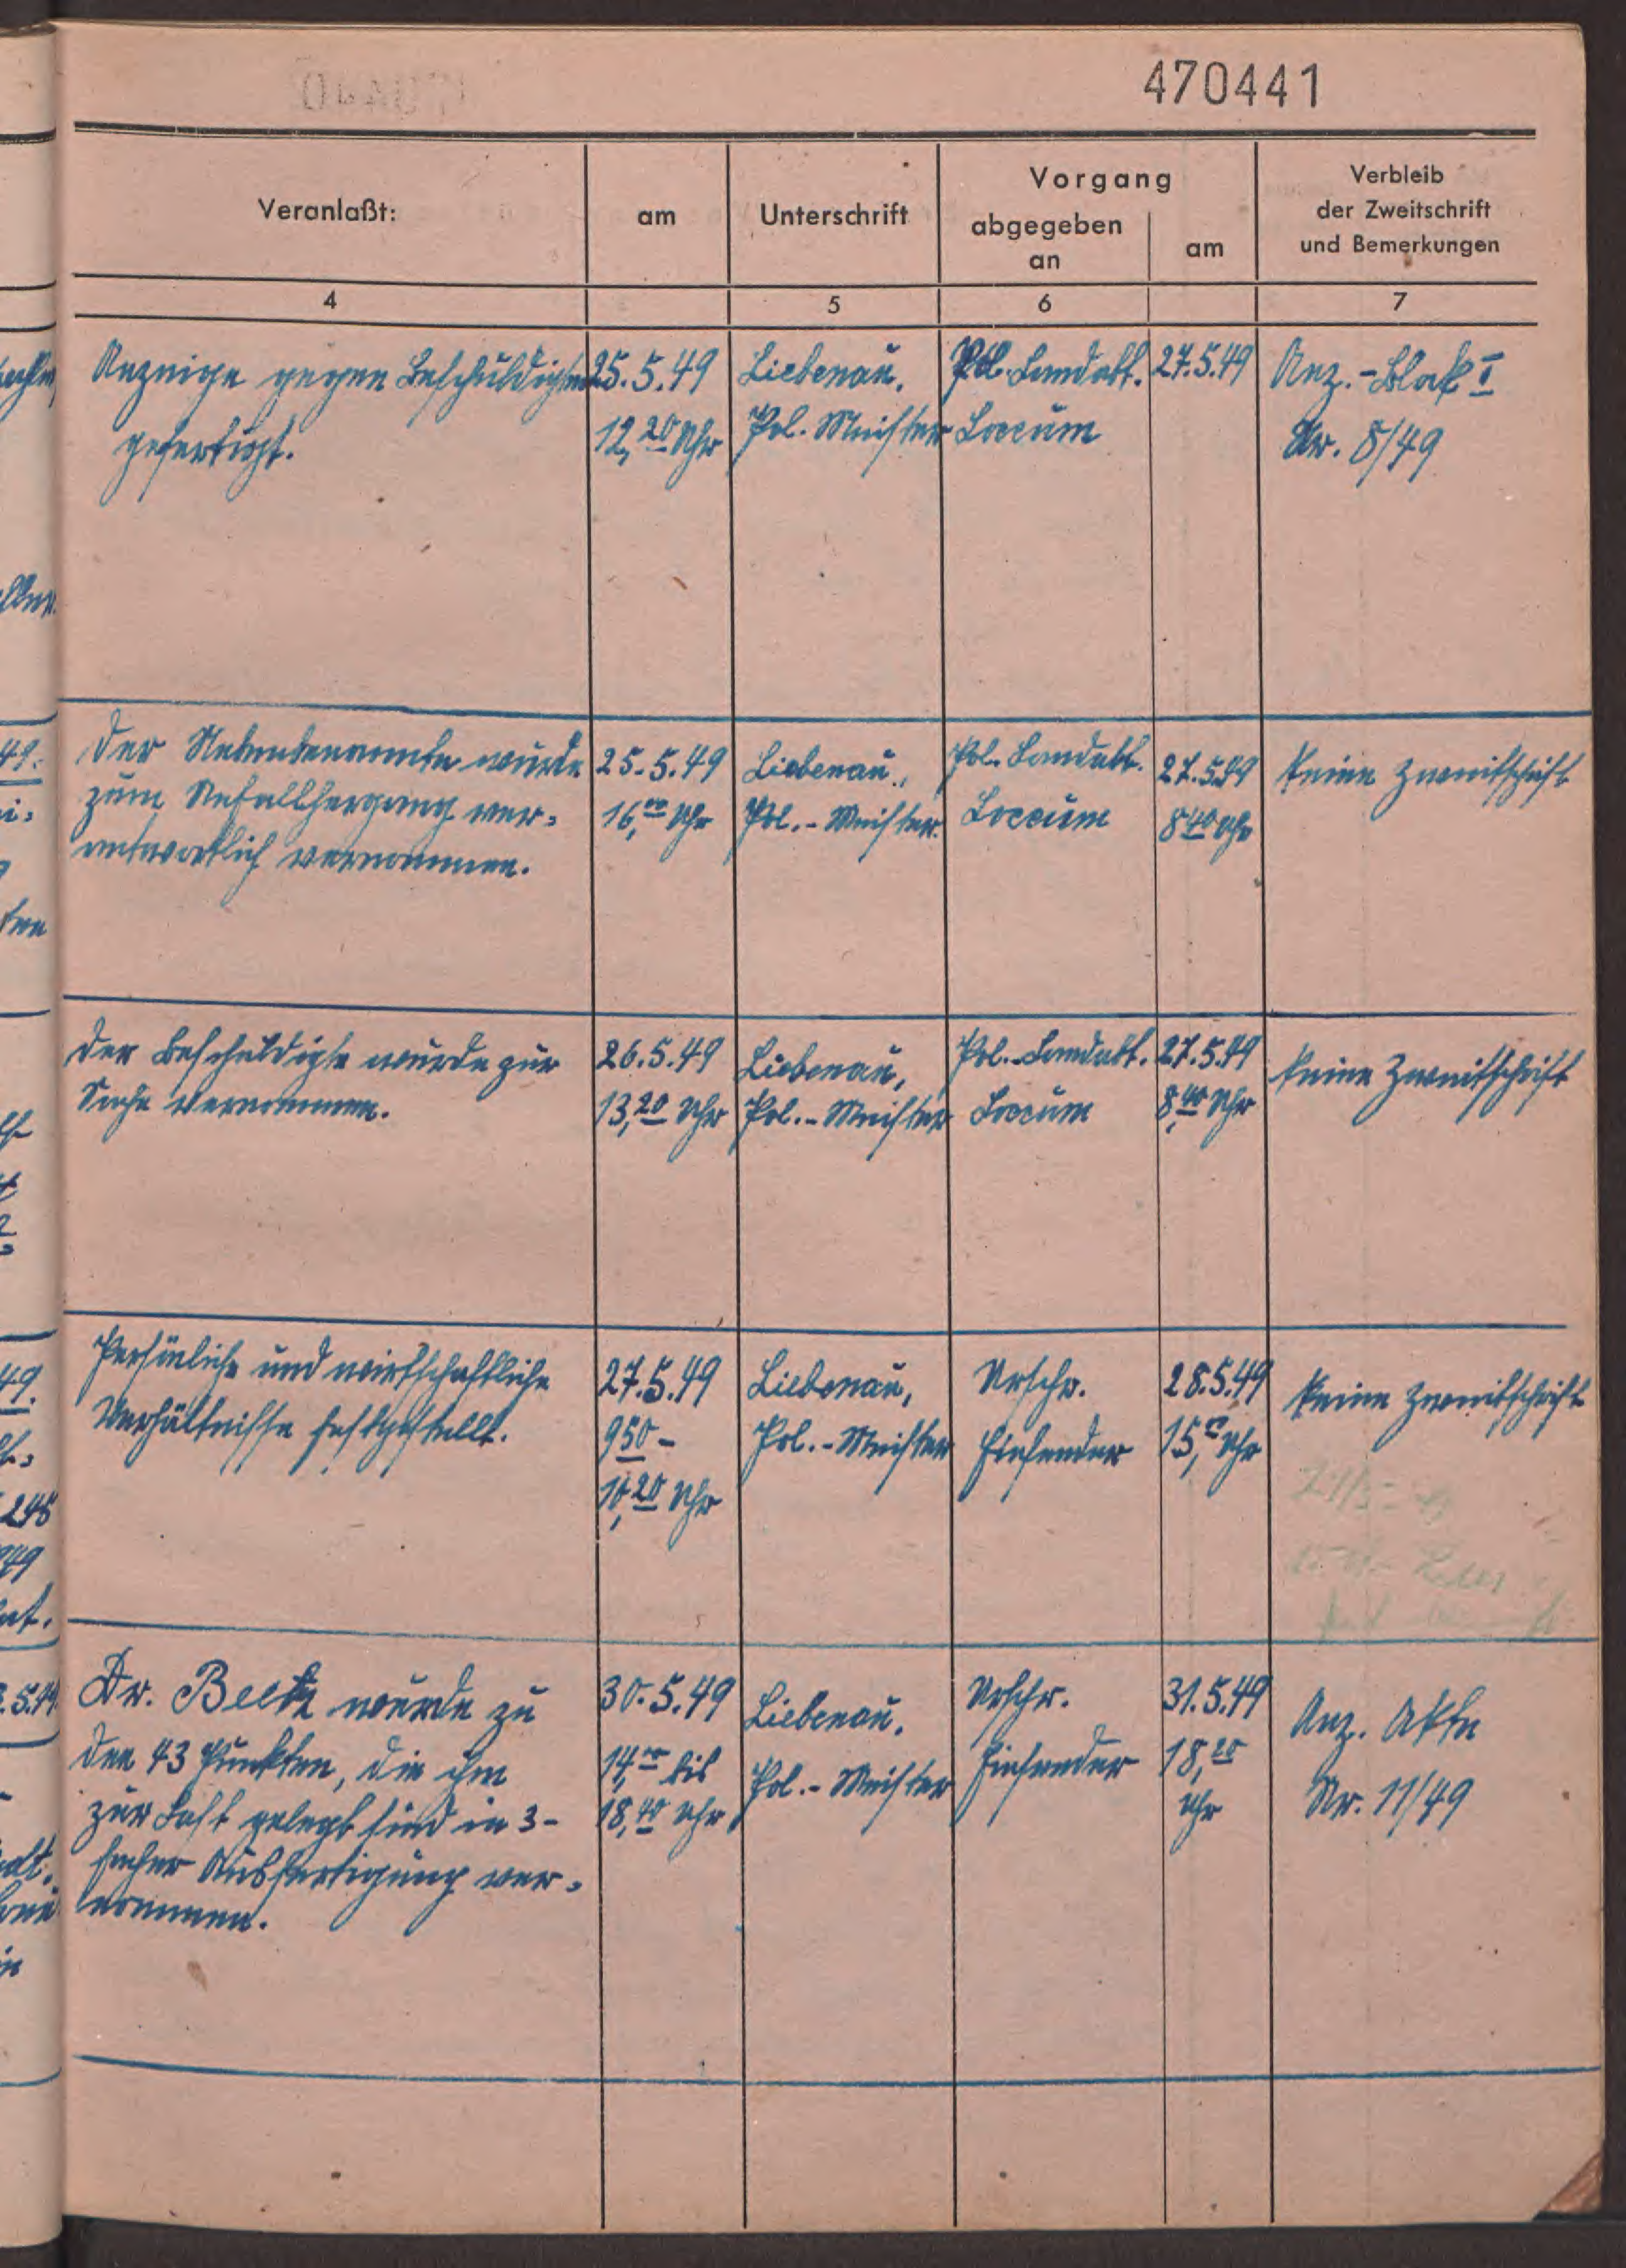 470441
Veranlaßt:
am
Unterschrift
Vorgang
abgegeben
an
am
Verbleib
der Zweitschrift
und Bemerkungen
4
5
6
7
Anzeige gegen Beschuldigten
gefertigt.
25.5.49
12,20 Uhr
Liebenau,
Pol. Meister
Pol. Landabt.
Loccum
27.5.49
Anz.-Block I
Nr. 8/49
Der Nebenbenannte wurde
zum Unfallhergang ver-
antwortlich vernommen.
25.5.49
16,00 Uhr
Liebenau,
Pol.-Meister
Pol. Landabt.
Loccum
27.5.49
8 40 Uhr
Keine Zweitschrift
Der Beschuldigte wurde zur
Sache vernommen.
26.5.49
13,20 Uhr
Liebenau,
Pol.-Meister
Pol.-Landabt.
Loccum
27.5.49
8,40 Uhr
Keine Zweitschrift
Persönliche und wirtschaftliche
Verhältnisse festgestellt.
27.5.49
9 50 -
10,20 Uhr
Liebenau,
Pol.-Meister
Urschr.
Einsender
28.5.49
15,00 Uhr
Keine Zweitschrift
Dr. wurde zu
den 43 Punkten, die ihm
zur Last gelegt sind in 3-
facher Ausfertigung ver-
nommen.
30.5.49
14,00 bis
18,40 Uhr
Liebenau,
Pol.-Meister
Urschr.
Einsender
31.5.49
18,20
Uhr
Anz. Akte
Nr. 11/49